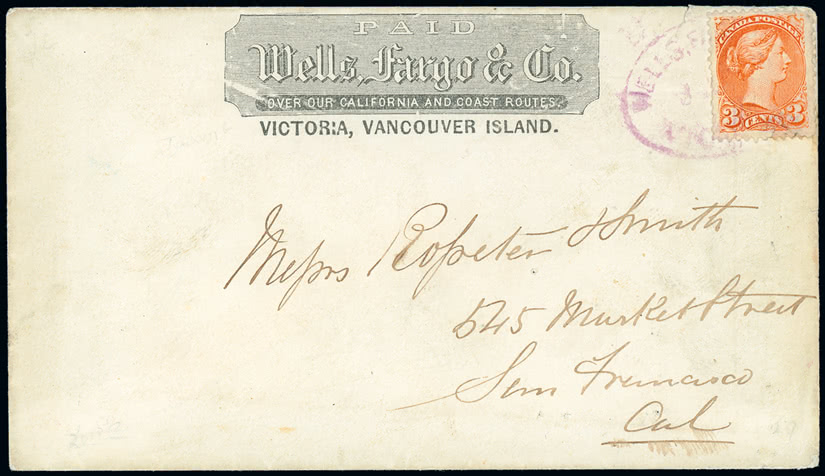 PAID
Wells, Fargo & Co.
OVER OUR CALIFORNIA AND COAST ROUTES.
VICTORIA, VANCOUVER ISLAND.
WELLS, F
CANADA POSTAGE
3 CENTS 3
Messrs Rosseter & Smith
545 Market Street
San Francisco
Cal